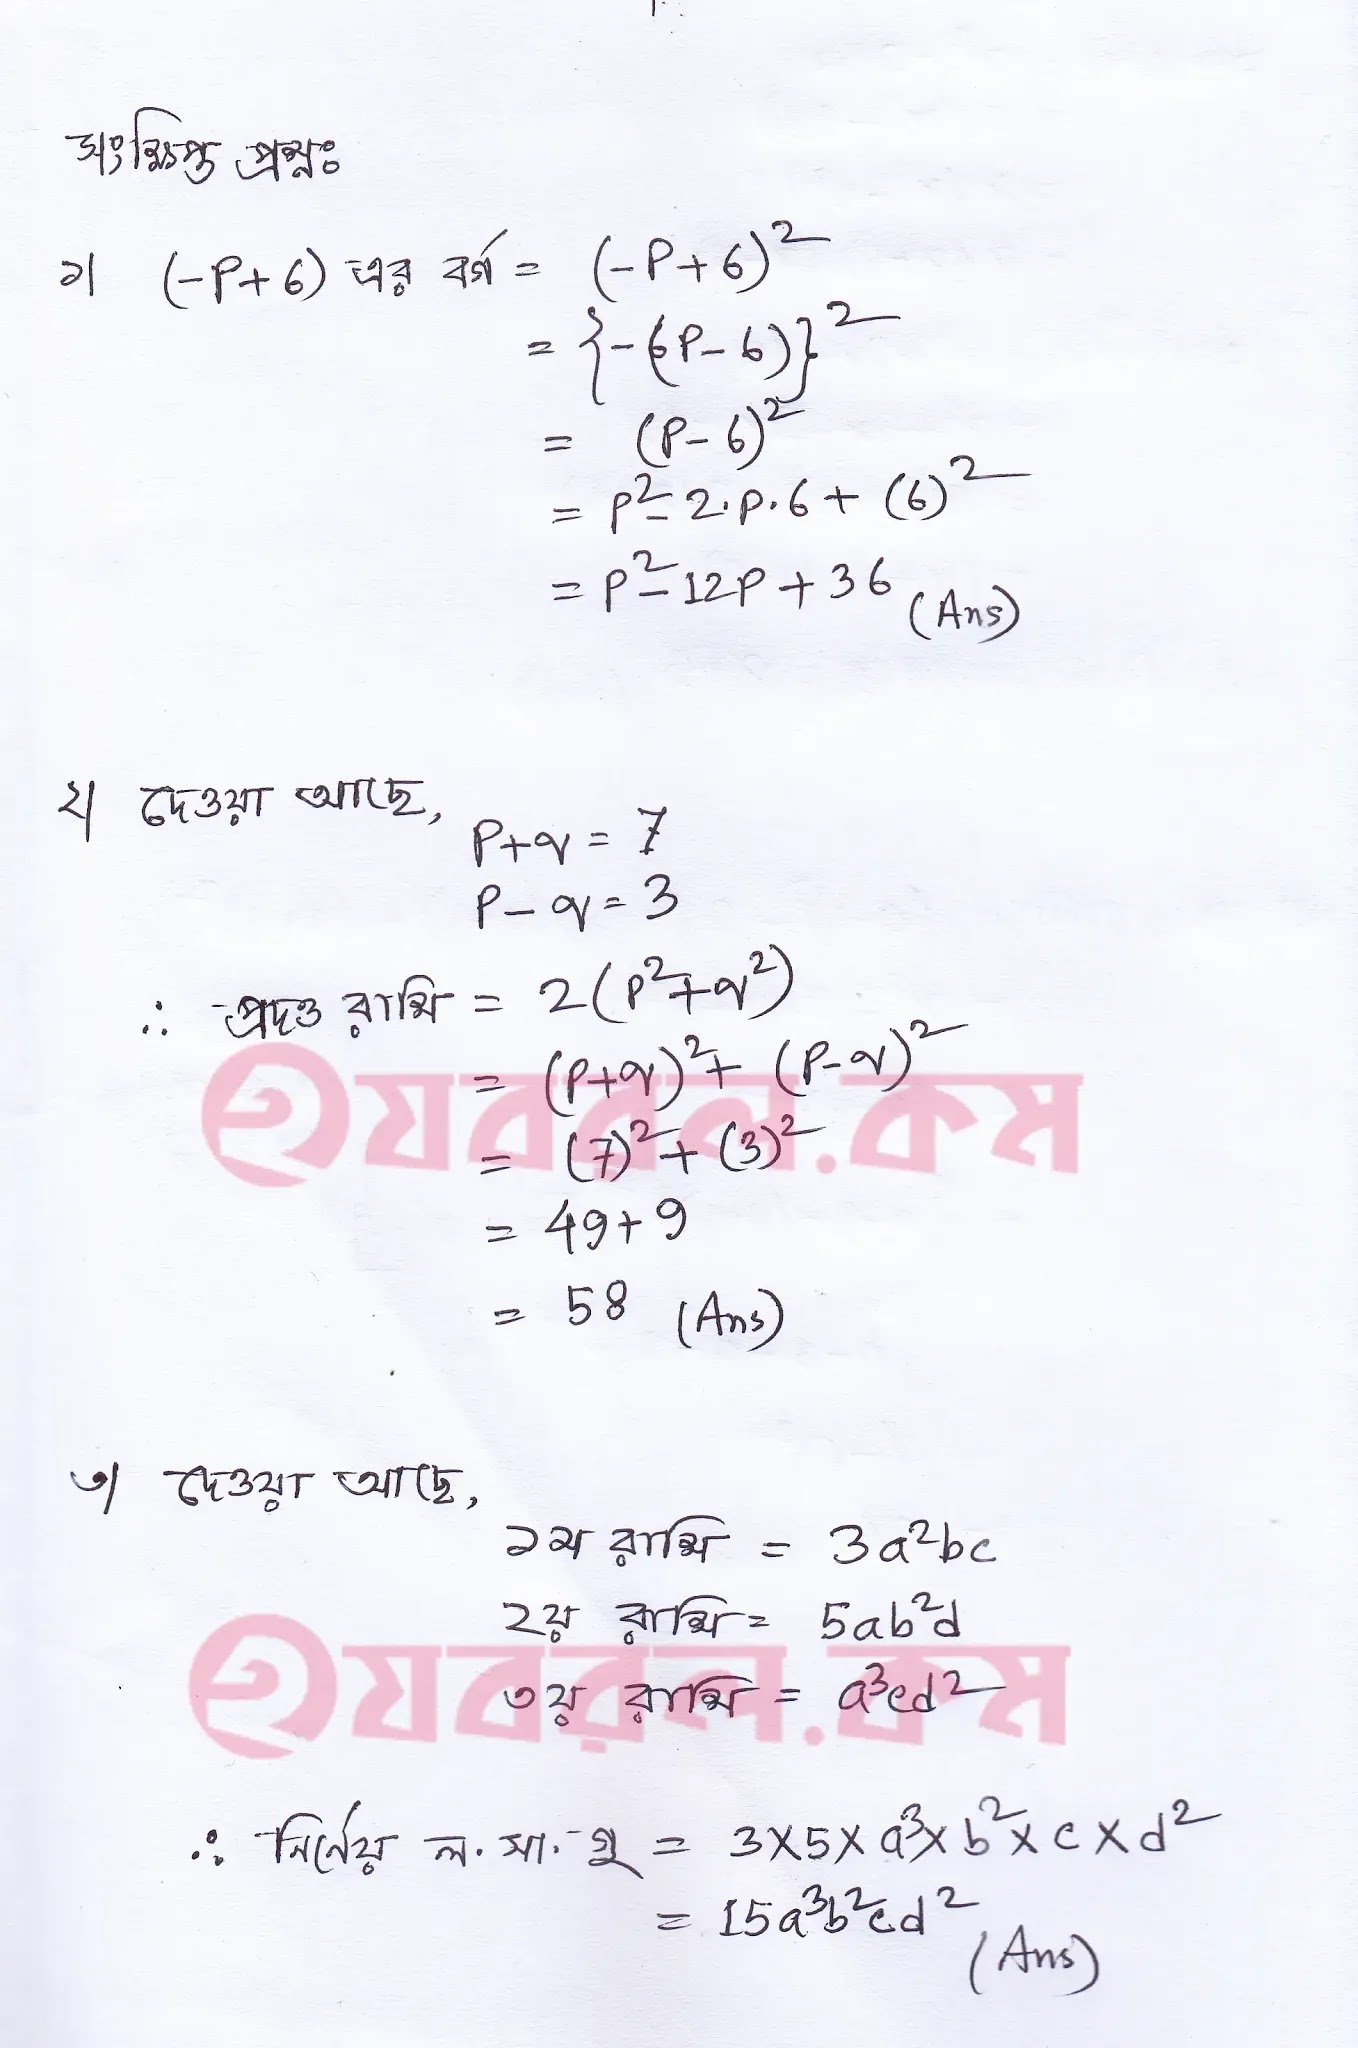 সংক্ষিপ্ত প্রশ্নঃ
১। (-P+6) এর বর্গ = (-P+6)²
= {-(6P-6)}²
= (P-6)²
= P²-2.P.6+(6)²
= P²-12P+36 (Ans)
২। দেওয়া আছে,
P+q = 7
P-q = 3
∴ প্রদত্ত রাশি = 2(P²+q²)
= (P+q)²+(P-q)²
= (7)²+(3)²
= 49+9
= 58 (Ans)
হযবরল.কম
৩। দেওয়া আছে,
১ম রাশি = 3a²bc
২য় রাশি = 5ab²d
৩য় রাশি = a³cd²
হযবরল.কম
∴ নির্ণেয় ল.সা.গু = 3×5×a³×b²×c×d²
= 15a³b²cd² (Ans)